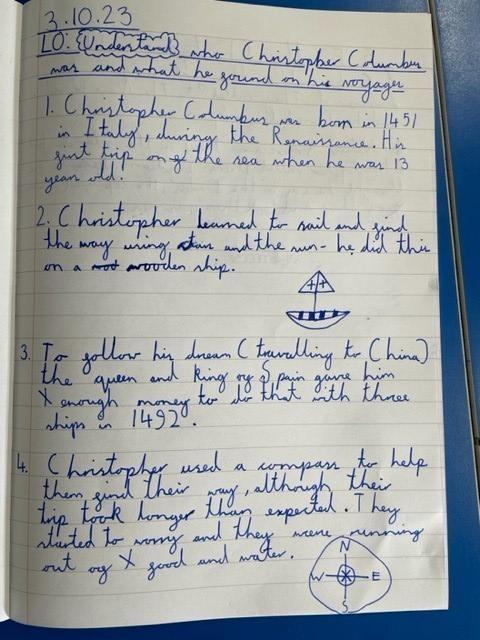 3.10.23
LO: Understand who Christopher Columbus
was and what he found on his voyages
1. Christopher Columbus was born in 1451
in Italy, during the Renaissance. His
first trip on the sea when he was 13
years old.
2. Christopher learned to sail and find
the way using stars and the sun - he did this
on a wooden ship.
3. To follow his dream (travelling to China)
the queen and king of Spain gave him
enough money to do that with three
ships in 1492.
4. Christopher used a compass to help
them find their way, although their
trip took longer than expected. They
started to worry and they were running
out of food and water.
N
W E
S